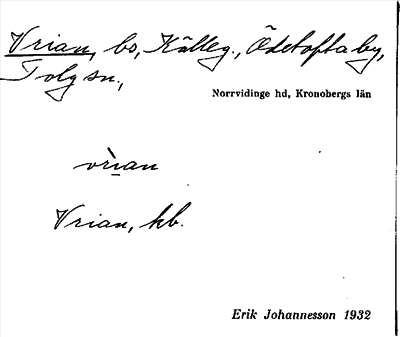 Vrian, bo, Källeg., Ödetofta by,
Tolg sn.,
Norrvidinge hd, Kronobergs län
vrìan
Vrian, hb.
Erik Johannesson 1932